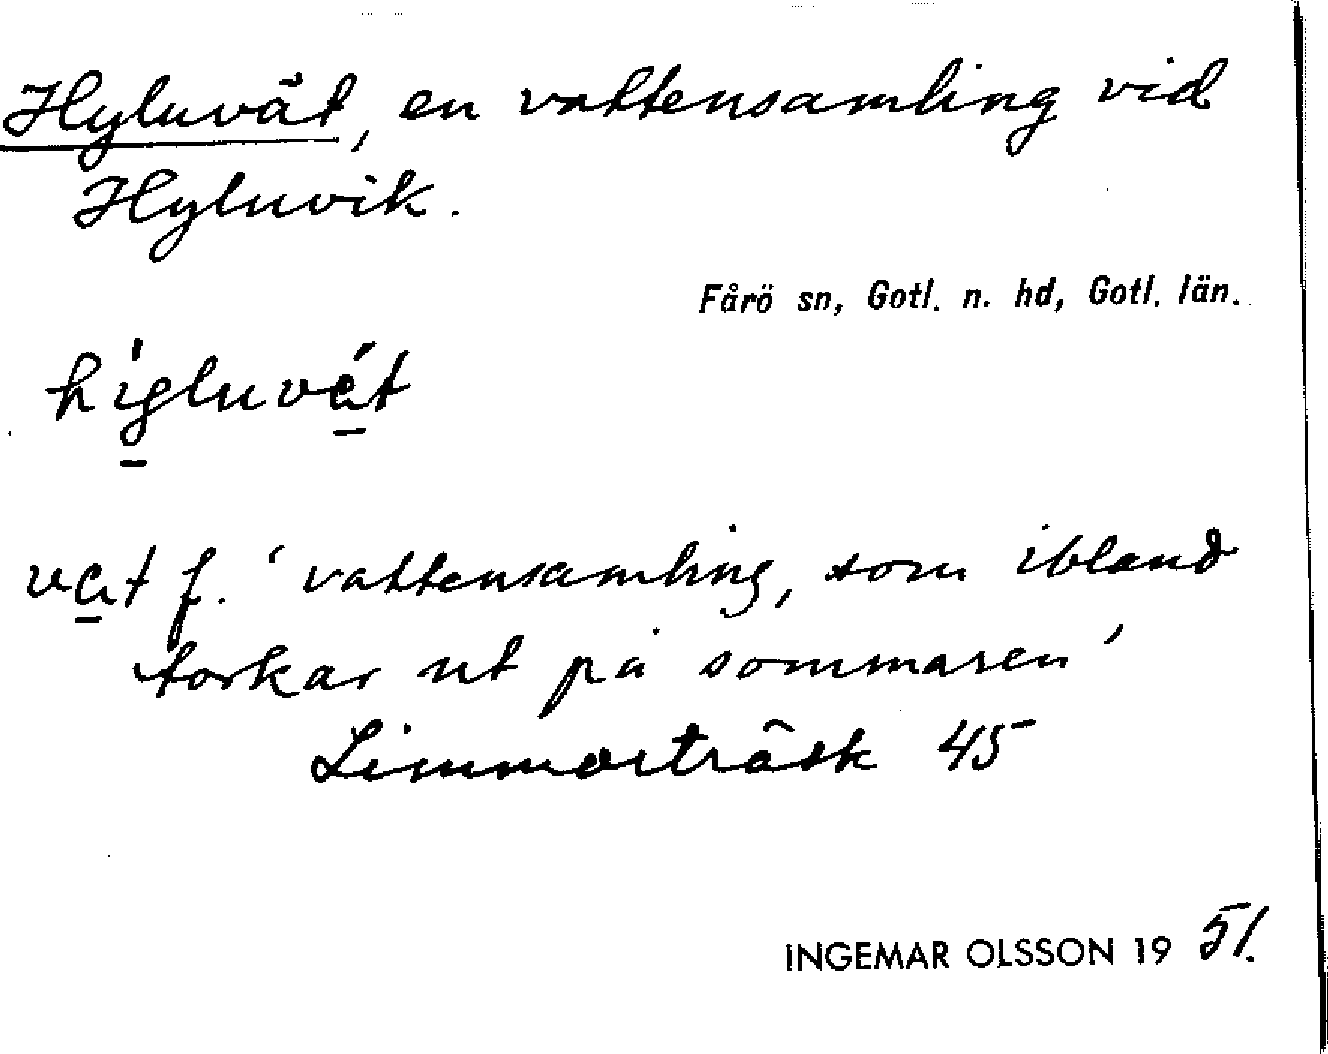 Hyluvät, en vattensamling vid
Hyluvik.
Fårö sn, Gotl. n. hd, Gotl. län.
vät f. ' vattensamling, som ibland
torkar ut på sommaren '
Limmorträsk 45
INGEMAR OLSSON 19 51.